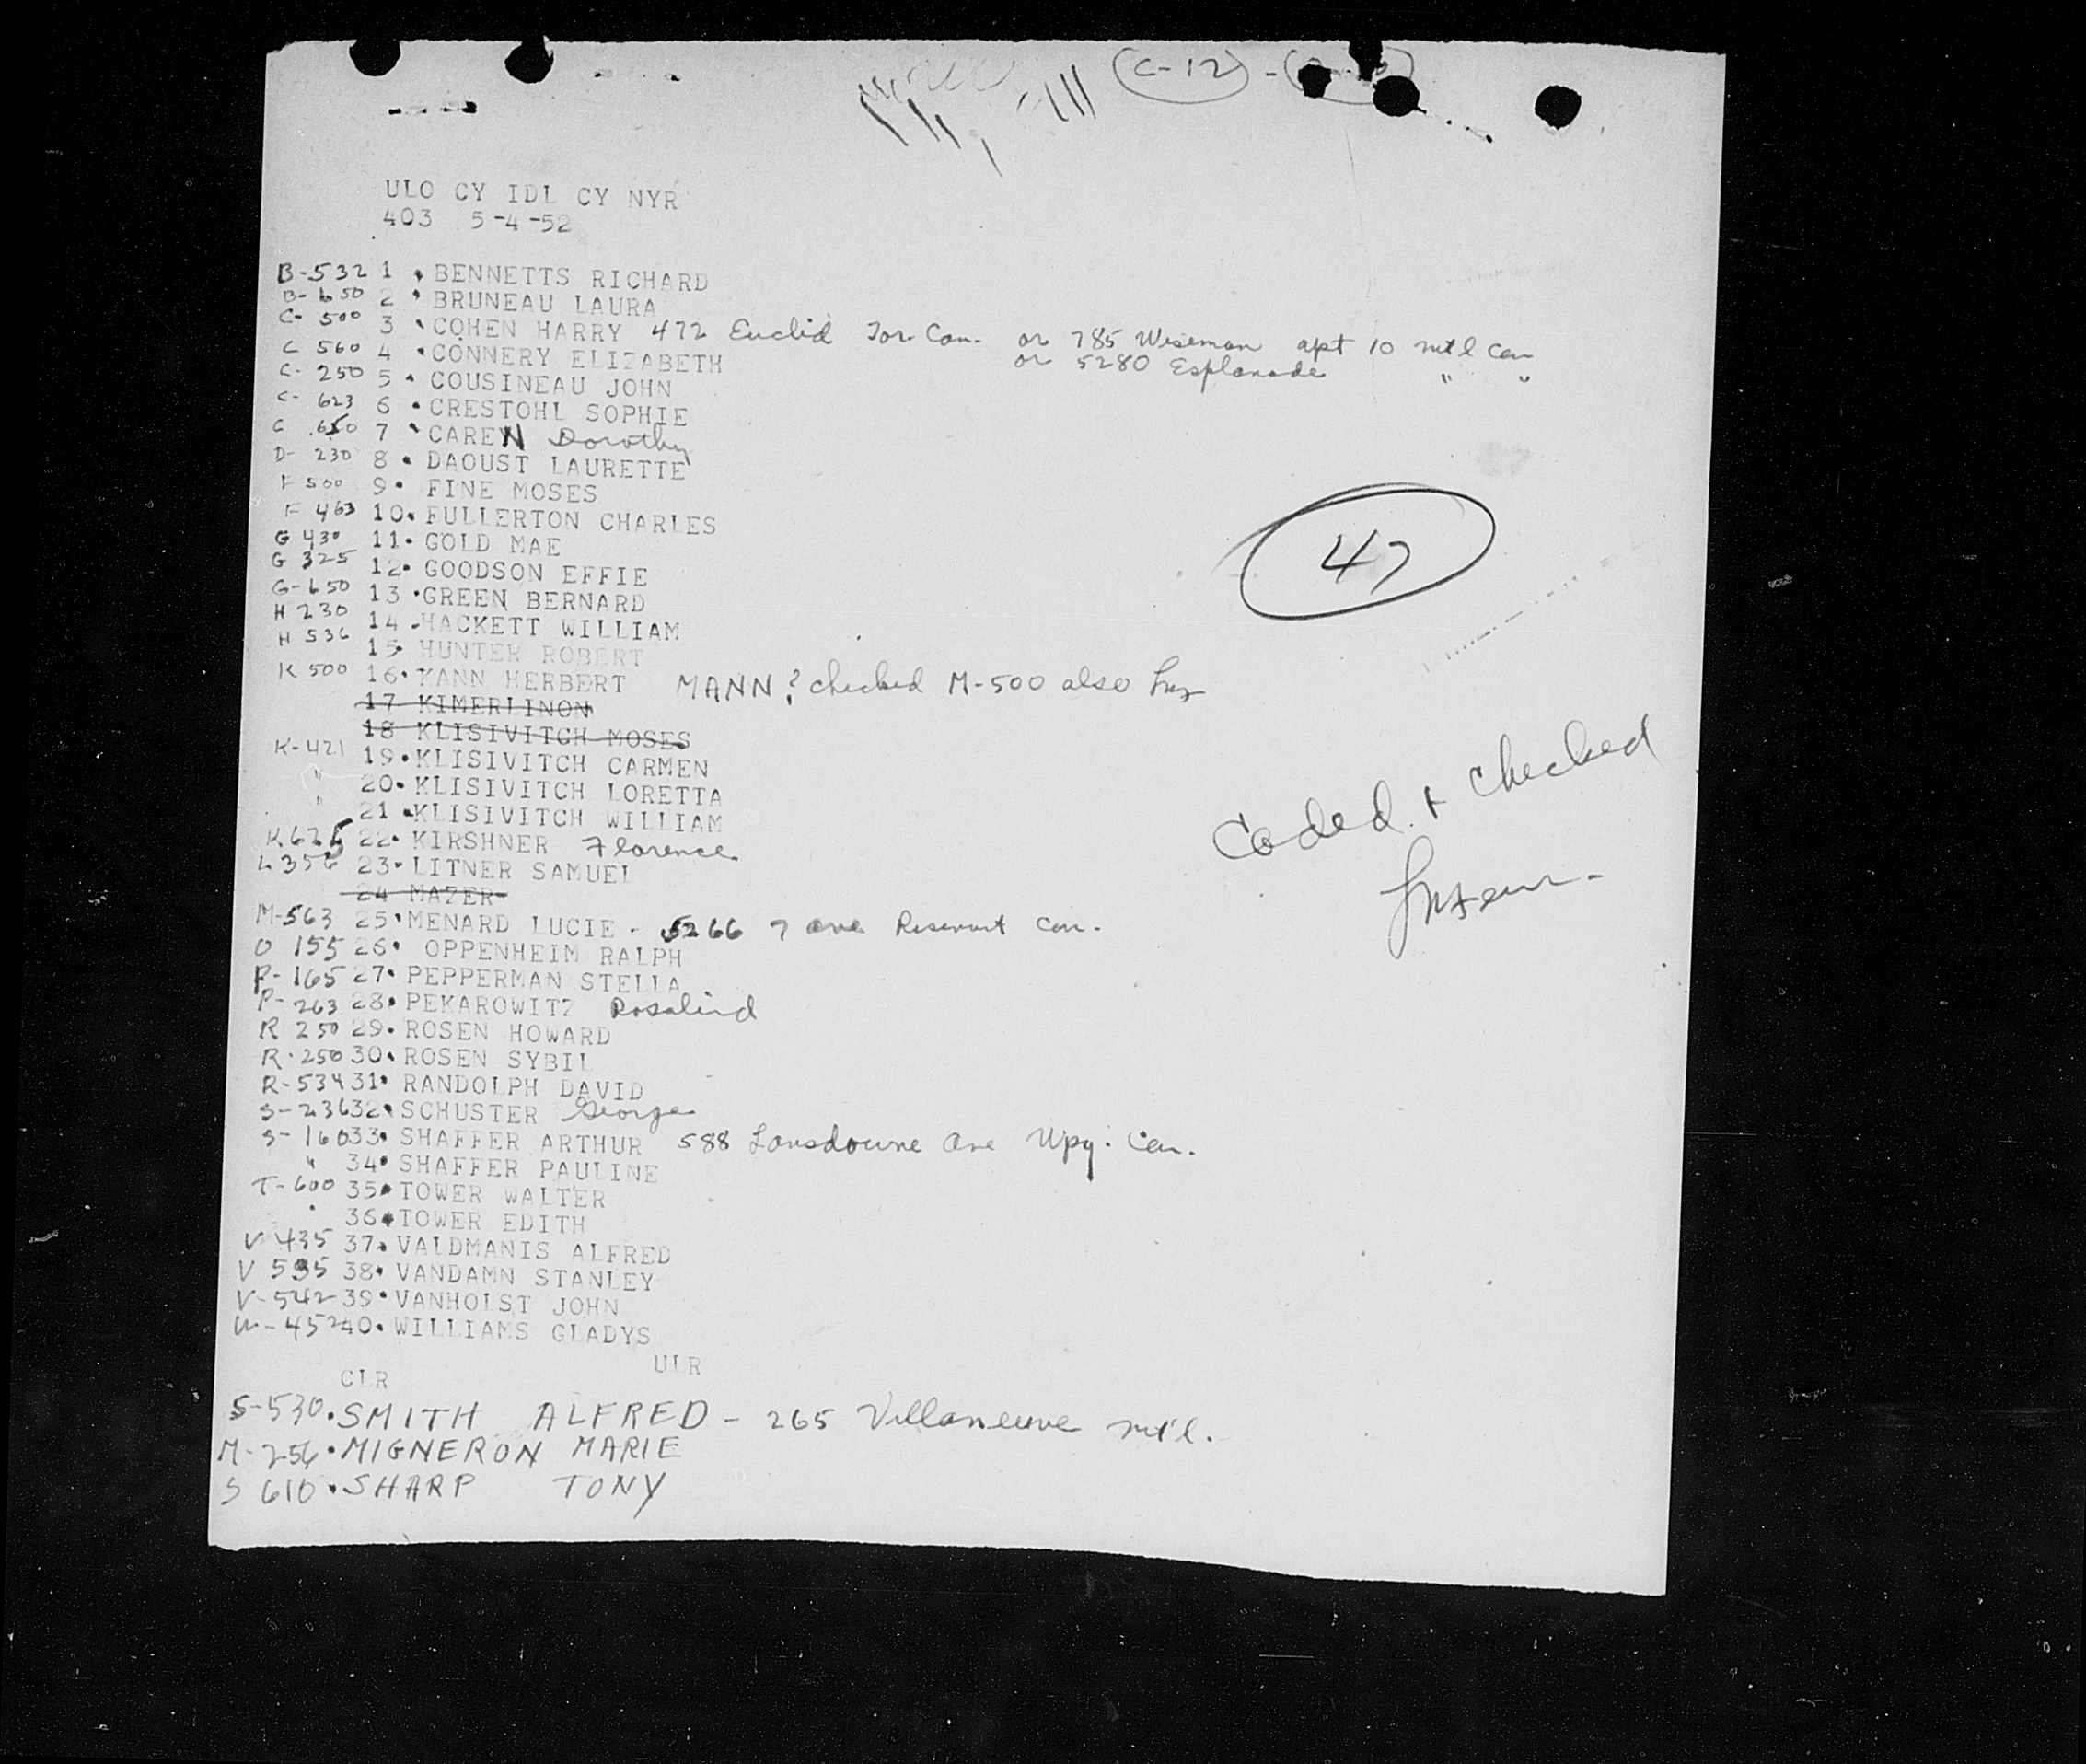 C-12 -
ULO CY IDL CY NYR
403 5-4-52
B-532 1 BENNETTS RICHARD
B-650 2 BRUNEAU LAURA
C-500 3 COHEN HARRY 472 Euclid Tor Can. or 785 Wiseman apt 10 mtl Can
C 560 4 CONNERY ELIZABETH or 5280 Esplanade " "
C-250 5 COUSINEAU JOHN
C-623 6 CRESTOHL SOPHIE
C 650 7 CAREN Dorothy
D-230 8 DAOUST LAURETTE
F 500 9 FINE MOSES
F 463 10 FULLERTON CHARLES
G 430 11 GOLD MAE
G 325 12 GOODSON EFFIE
G-650 13 GREEN BERNARD
H 230 14 HACKETT WILLIAM
H 536 15 HUNTER ROBERT
K 500 16 KANN HERBERT MANN? checked M-500 also
17 KIMERLINON
18 KLISIVITCH MOSES
K-421 19 KLISIVITCH CARMEN
" 20 KLISIVITCH LORETTA
" 21 KLISIVITCH WILLIAM
K625 22 KIRSHNER Florence
L356 23 LITNER SAMUEL
24 MAZER
M-563 25 MENARD LUCIE - 5266 7 ave Can.
O 155 26 OPPENHEIM RALPH
P-165 27 PEPPERMAN STELLA
P-263 28 PEKAROWITZ Rosalind
R 250 29 ROSEN HOWARD
R-250 30 ROSEN SYBIL
R-534 31 RANDOLPH DAVID
S-236 32 SCHUSTER George
S-160 33 SHAFFER ARTHUR 588 Lansdowne Ave Wpg. Can.
" 34 SHAFFER PAULINE
T-600 35 TOWER WALTER
36 TOWER EDITH
V 435 37 VALDMANIS ALFRED
V 535 38 VANDAMN STANLEY
V-542 39 VANHOLST JOHN
W-452 40 WILLIAMS GLADYS
CLR ULR
S-530 SMITH ALFRED - 265 Villaneuve mt'l.
M-256 MIGNERON MARIE
S 610 SHARP TONY
47
Coded + checked